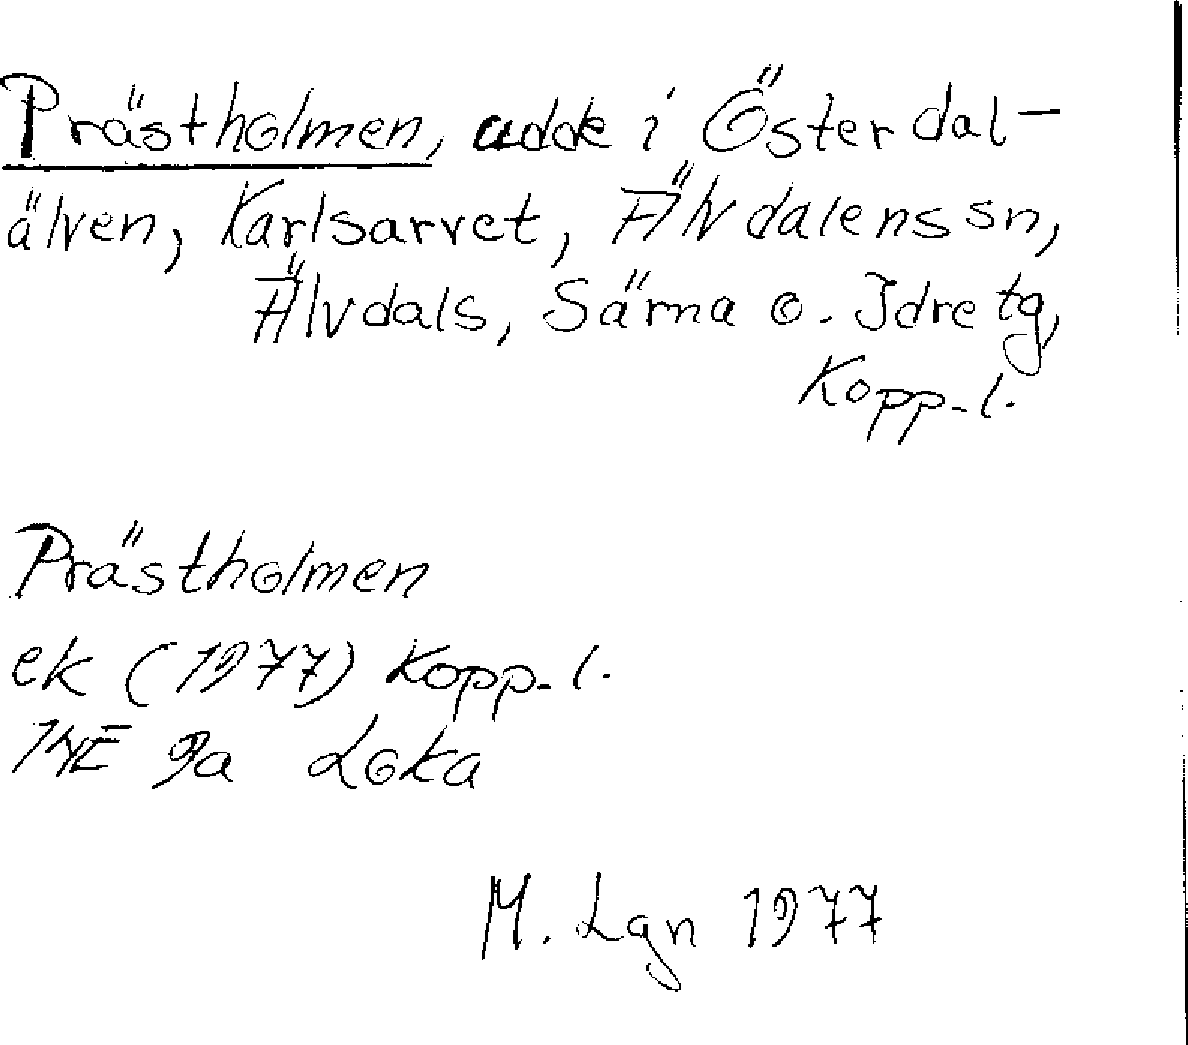 Prästholmen, udde i Österdal-
älven, Karlsarvet, Älvdalens sn,
Älvdals, Särna o. Idre tg,
Kopp. l.
Prästholmen
ek (1977) Kopp. l.
14E 9a Loka
M. Lgn 1977